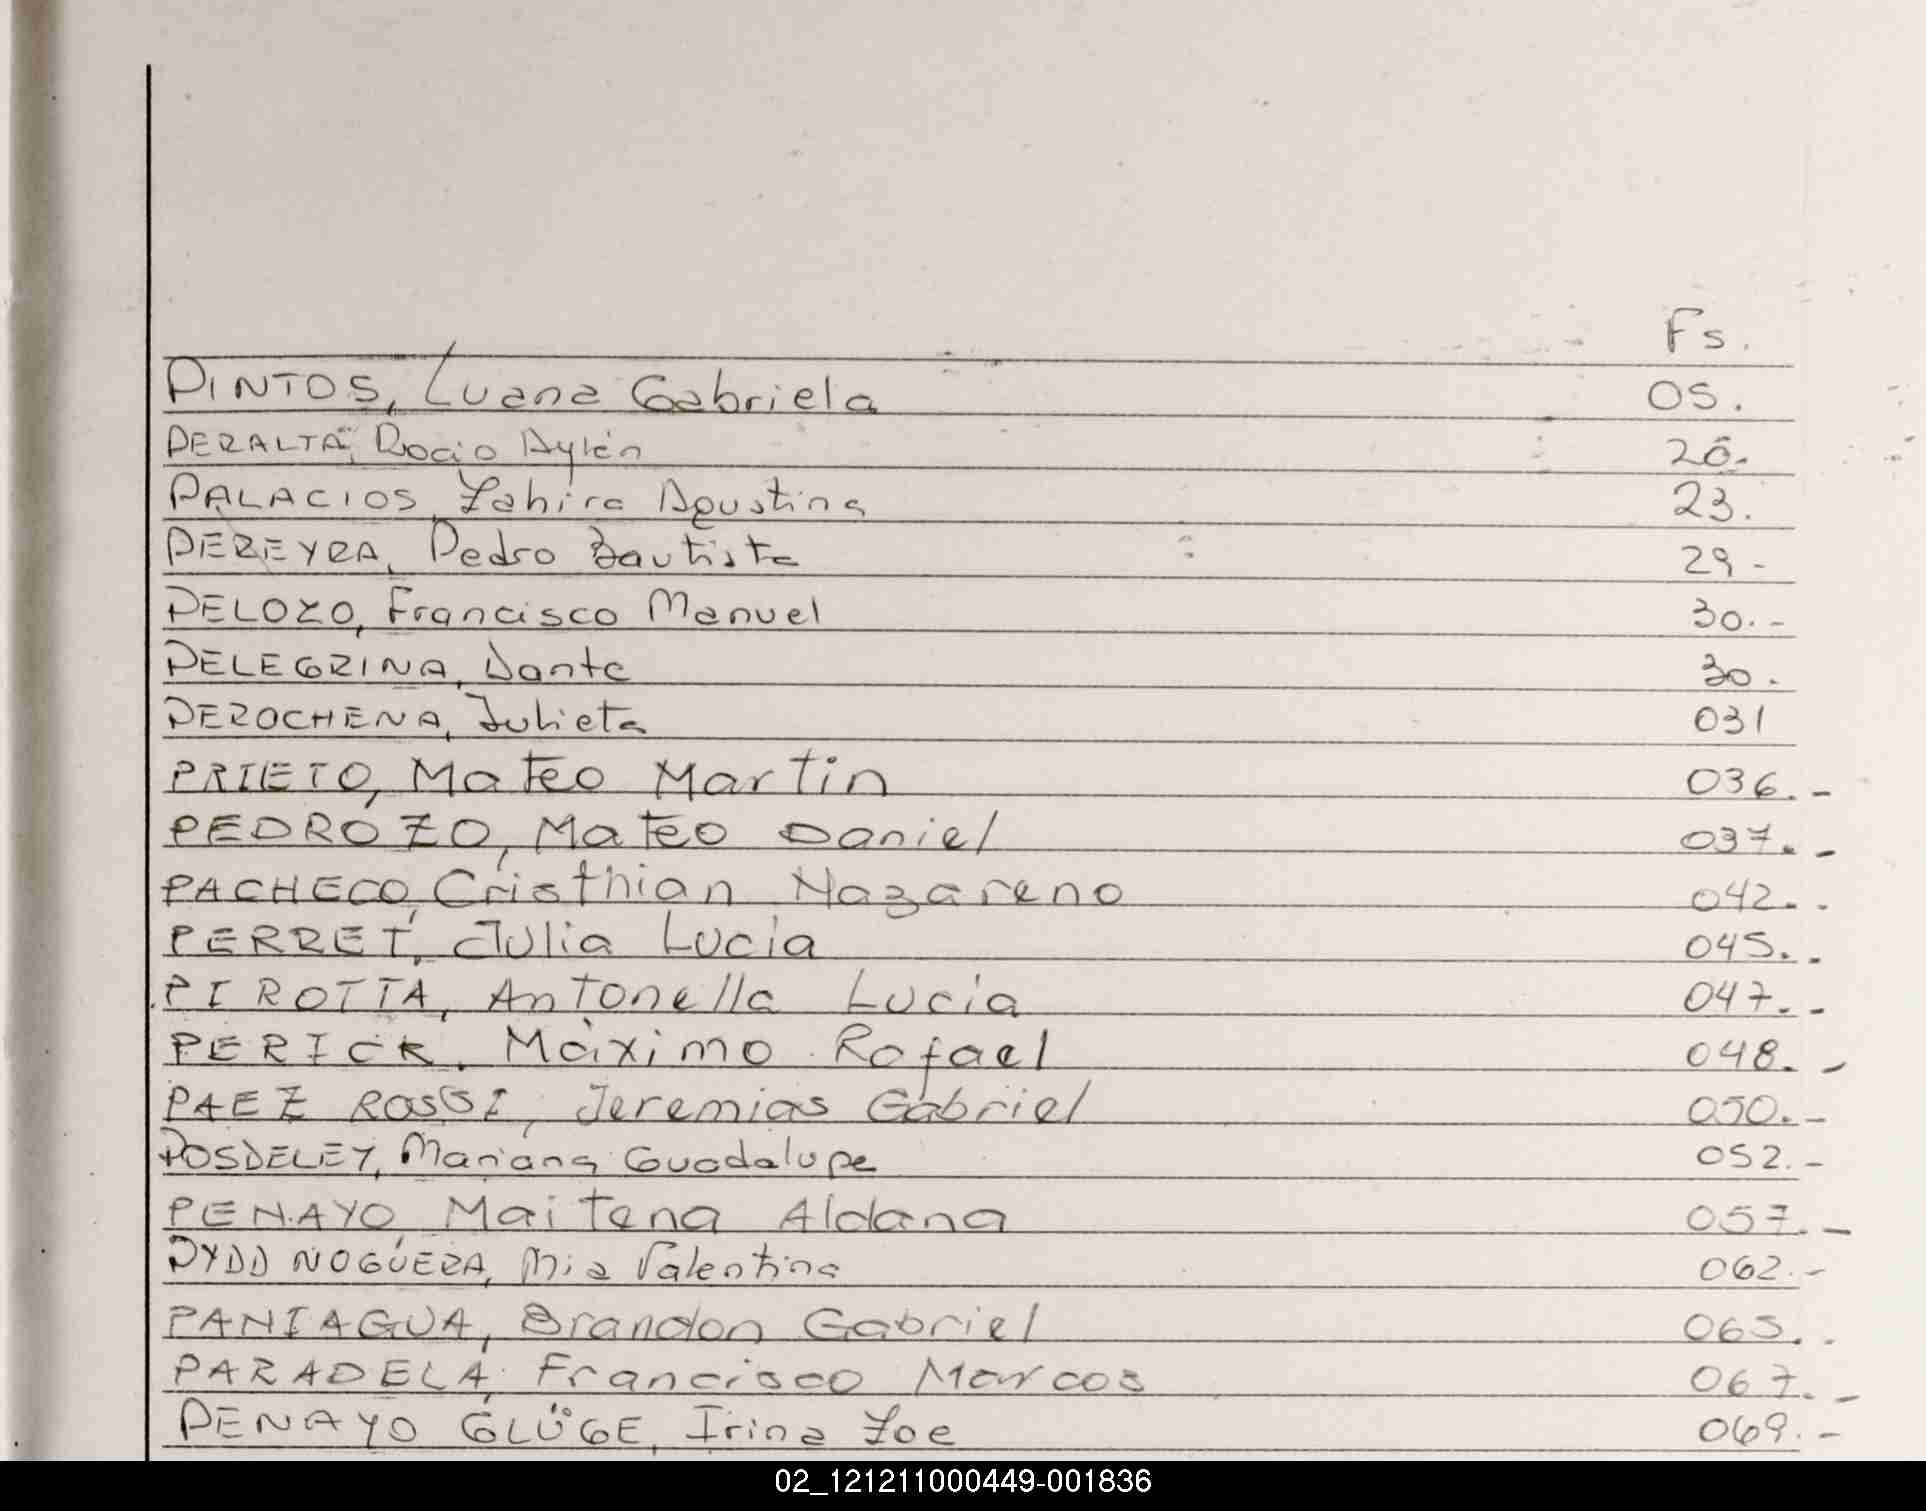 Fs.
PINTOS, Luana Gabriela 05.
PERALTA, Rocio Aylén 20.
PALACIOS, Zahira Agustina 23.
PEREYRA, Pedro Bautista 29 -
PELOZO, Francisco Manuel 30.-
PELEGRINA, Dante 30.
PEROCHENA, Julieta 031
PRIETO, Mateo Martin 036.-
PEDROZO, Mateo Daniel 037.-
PACHECO, Cristhian Nazareno 042.-
PERRET, Julia Lucia 045.-
PIROTTA, Antonella Lucia 047.-
PERICK, Máximo Rafael 048.-
PAEZ ROSSI, Jeremias Gabriel 050.-
POSDELEY, Mariana Guadalupe 052.-
PENAYO, Maitena Aldana 057.-
PYDD NOGUERA, Mia Valentina 062.-
PANIAGUA, Brandon Gabriel 065.-
PARADELA, Francisco Marcos 067.-
PENAYO GLÜGE, Irina Zoe 069.-
02_121211000449-001836